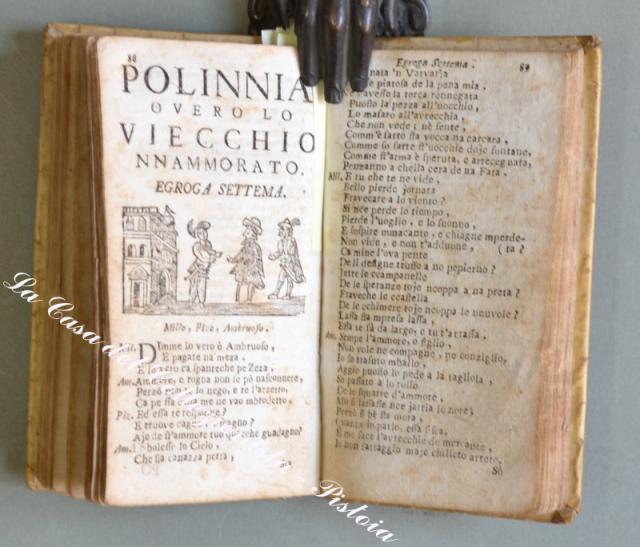 88
POLINNIA
OVERO LO
VIECCHIO
NNAMMORATO.
EGROGA SETTEMA.
Millo, Pizo, Ambruoso.
DImme lo vero ò Ambruoso,
E pagate na meza,
E lo vero ca spanteche pe Zeza.
Am. Ammore, e rogna non se pò nasconnere,
Perzò non te lo nego, e te l'azzetto,
Ca pe ssa me ne vao mbrodetto.
Piz. Ed essa te responne?
E truove cagno,
Aje de st'ammore tuo quacche guadagno?
Am. bolesse lo Cielo,
Che sta canazza perra,
Egroga Settema. 89
nata 'n Varvaria
piatosa de la pena mia.
avesse la torca rennegata
Puosto la pezza all'uocchio,
Lo masaro all'avrecchia,
Che non vede; nè sente,
Comm'è fatto sta vocca na carcara,
Comme so fatte st'uocchie doje fontane,
Comme st'arma è speruta, e arrecegnata,
Penzanno a chella cera de na Fata.
Mil. E tu che te ne vide,
Bello pierde jornata
Fravecare a lo viento?
Si nce perde lo tiempo,
Pierde l'uoglio, e lo suonno,
E sospire mmacanto, e chiagne mperde-
Non vide, e non t'adduone, (ta?
Ca mine l'ova pente
Dell designe truosse a no pepierno?
Jette le ccampanelle
De le speranze toje ncoppa a na preta?
Fraveche le ccastella
De le chimere toje ncoppe le nnuvole?
Lassa sta mpresa lassa,
Essa se sà da largo, e tu t'arrassa.
Am. Sempe l'ammore, o figlio,
Non vole ne compagne, ne conziglio,
Io so trasuto mballo,
Aggio puosto lo pede a la tagliola,
So passato a lo rollo
De le squatre d'ammore,
Mo si lassasse nce jarria lo nore;
Perrò s'hè sta mora,
Quanno io parlo, essa fisca,
E me face l'avrecchie de mercante,
Io non sattaggio maje chilleto arreto,
So
La Casa d
Pistoia